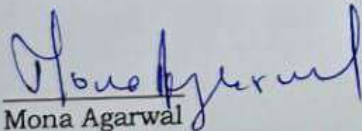 Mona Agarwal
Mona Agarwal